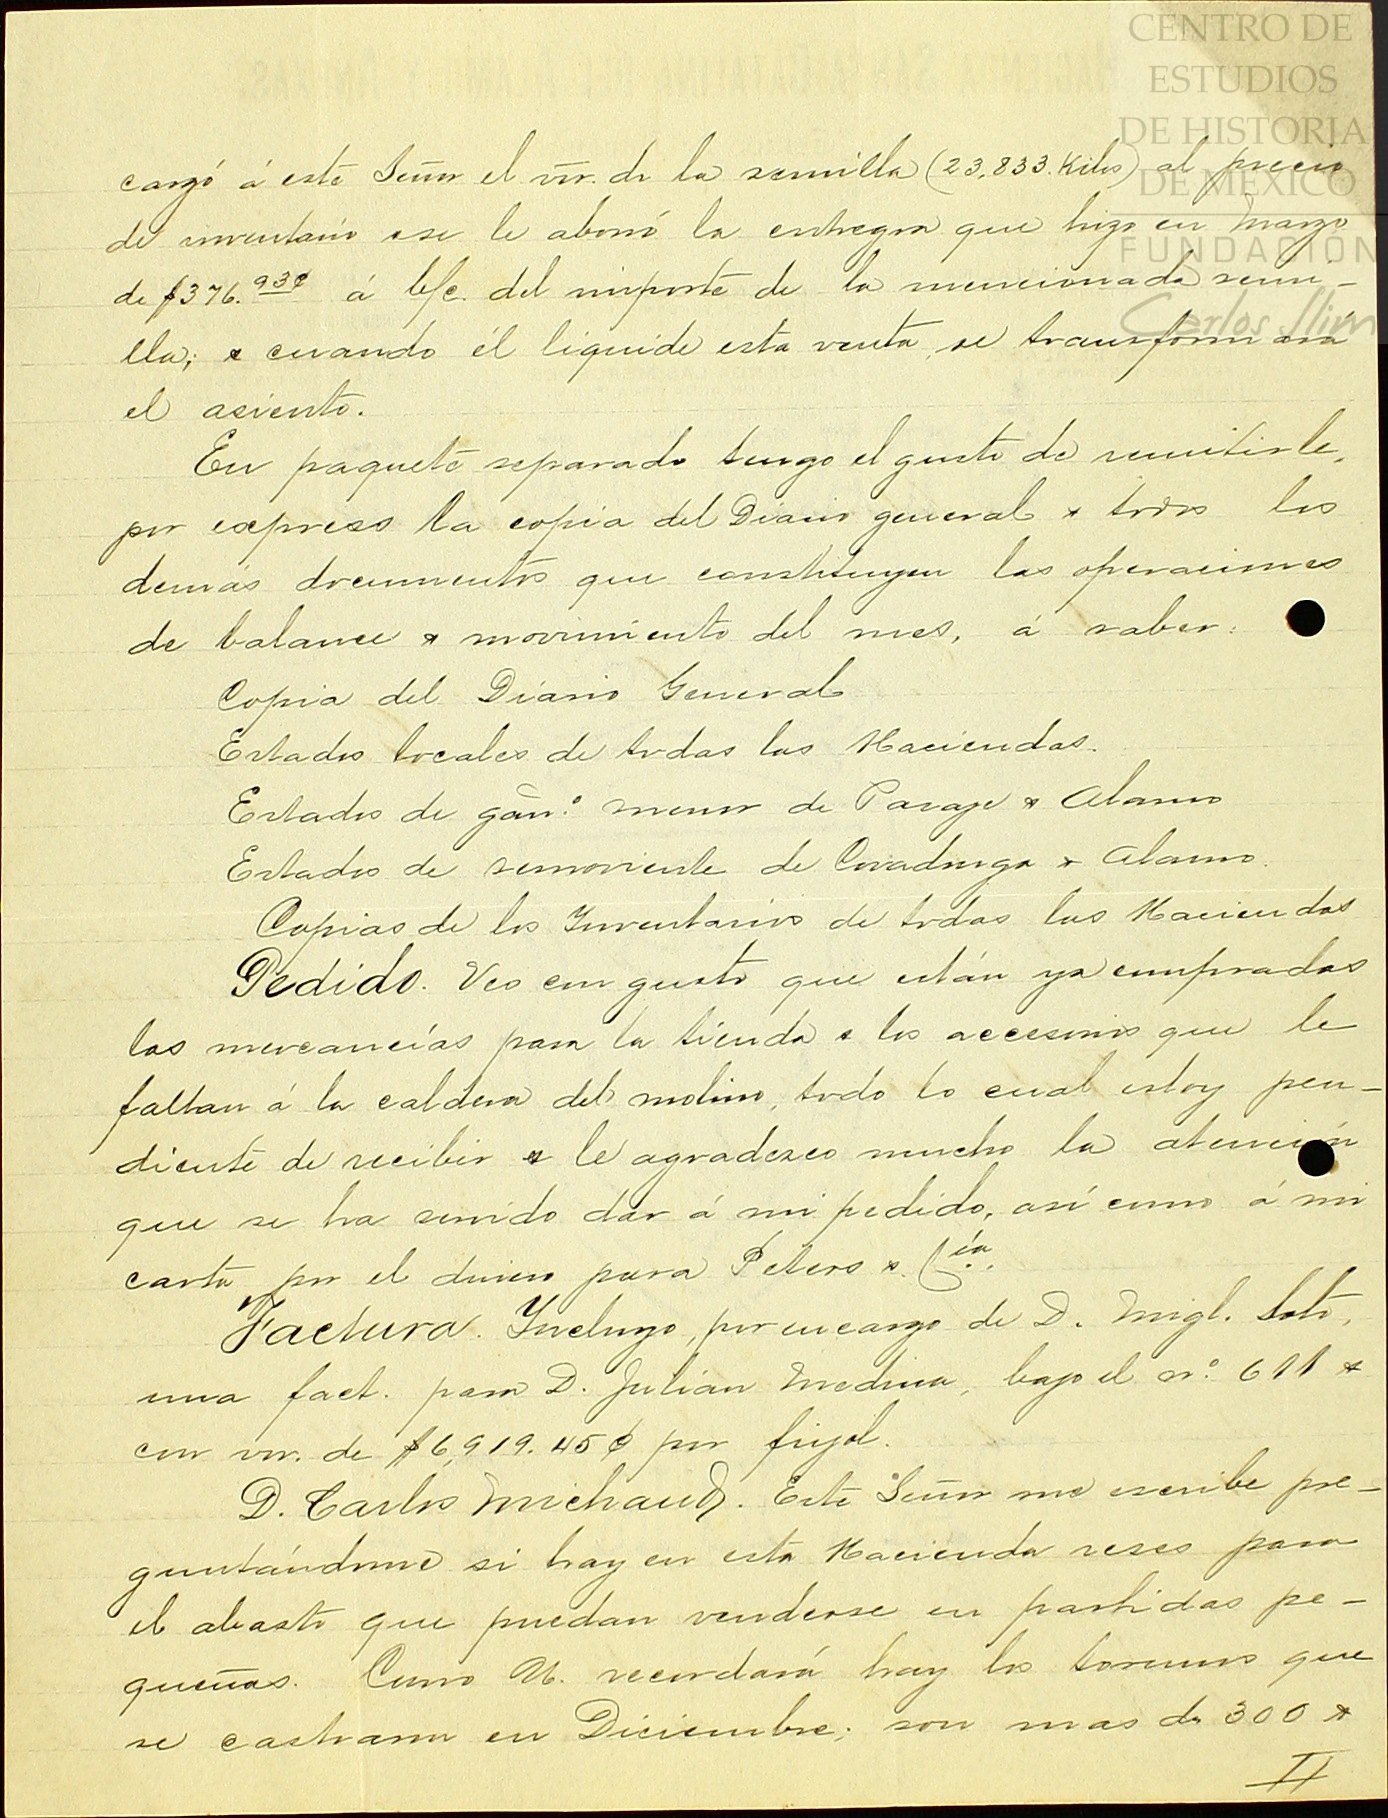 CENTRO DE
ESTUDIOS
DE HISTORIA
DE MÉXICO
FUNDACIÓN
Carlos Slim
cargó á este Señor el vr. de la semilla (23,833. Kilos) al precio
de inventario & se le abonó la entrega que hizo en Marzo
de $376.93¢ á b/c. del importe de la mencionada semi-
lla; & cuando él liquide esta venta, se transformará
el asiento.
En paquete separado tengo el gusto de remitirle,
por express la copia del Diario general & todos los
demás documentos que constituyen las operaciones
de balance & movimiento del mes, á saber:
Copia del Diario General
Estados locales de todas las Haciendas.
Estados de gan.º menor de Pasaje & Alamo
Estados de semoviente de Covadonga & Alamo.
Copias de los Inventarios de todas las Haciendas
Pedido. Veo con gusto que están ya compradas
las mercancías para la tienda & los accesorios que le
faltan á la caldera del molino, todo lo cual estoy pen-
diente de recibir & le agradezco mucho la atención
que se ha servido dar á mi pedido, así como á mi
carta por el dinero para Peters & Cía.
Factura. Incluyo, por encargo de D. Migl. Soto,
una fact. para D. Julián Medina, bajo el nº. 611 &
con vr. de $6,919.45¢ por frijol.
D. Carlos Michaud. Este Señor me escribe pre-
guntándome si hay en esta Hacienda reses para
el abasto que puedan venderse en partidas pe-
queñas. Como U. recordará hay los torunos que
se castraron en Diciembre; son mas de 300 &
II